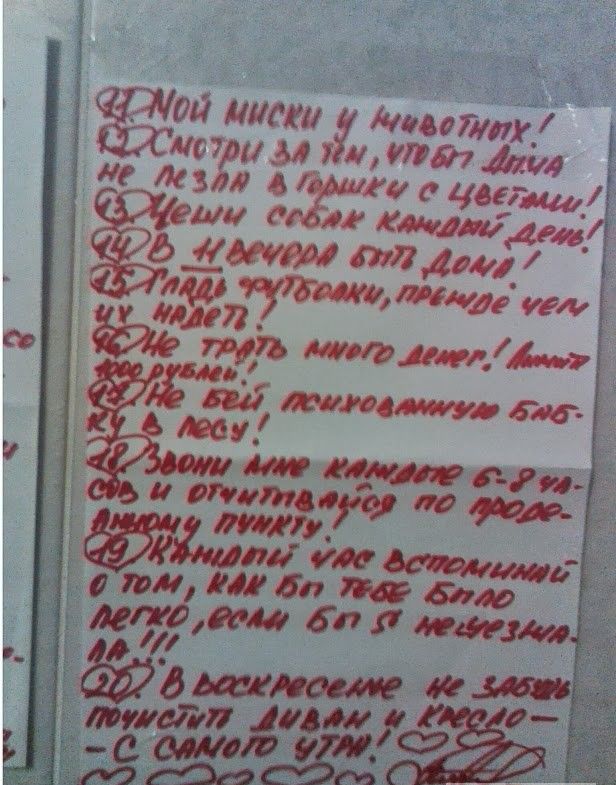 со
11. Мой миски у животных!
12. Смотри за тем, чтобы Дима
не лезла в горшки с цветами!
13. Чеши собак каждый день!
14. В 11 вечера быть дома!
15. Гладь футболки, прежде чем
их надеть!
16. Не трать много денег! Лимит
1000 рублей!
17. Не бей психованную баб-
ку в лесу!
18. Звони мне каждые 6-8 ча-
сов и отчитывайся по проде-
ланному пункту!
19. Каждый час вспоминай
о том, как бы тебе было
легко, если бы я не уезжа-
ла!!!
20. В воскресение не забудь
почистить диван и кресло —
— с самого утра!